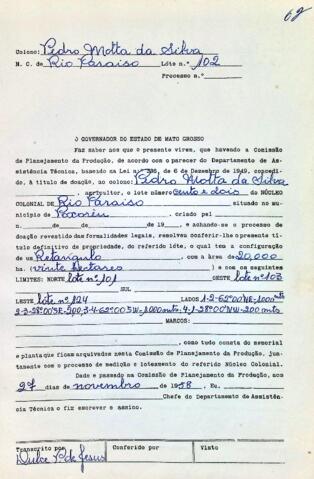 62
Colono: Pedro Motta da Silva
N. C. de Rio Paraiso Lote n.° 102
Processo n.°
O GOVERNADOR DO ESTADO DE MATO GROSSO
Faz saber aos que o presente virem, que havendo a Comissão
de Planejamento da Produção, de acordo com o parecer do Departamento de As-
sistência Técnica, baseado na Lei n.° 336, de 6 de Dezembro de 1949, concedi-
do, à título de doação, ao colono: Pedro Motta da Silva
, agricultor, o lote número cento e dois do NÚCLEO
COLONIAL DE Rio Paraiso situado no mu-
nicípio de Poconeu, criado pel
n.° de de de 19 , e achando-se o processo de
doação revestido das formalidades legais, resolveu conferir-lhe o presente ti
tulo definitivo de propriedade, do referido lote, o qual tem a configuração
de um Retangulo com a área de 20,000
ha (vinte hectares) e com os seguintes
LIMITES: NORTE lote nº 101 OESTE lote nº 103
SUL
LESTE lote nº 124 LADOS 1-2-62º00'NE-1000 mts
2-3-28º00'SE-200, 3-4-62º00'SW-1000 mts. 4-1-28º00'NW-200 mts
MARCOS:
, como tudo consta do memorial
e planta que ficam arquivados nesta Comissão de Planejamento da Produção, jun-
tamente com o processo de medição e loteamento do referido Núcleo Colonial.
Dado e passado na Comissão de Planejamento da Produção, aos
27 dias de novembro de 1958. Eu,
Chefe do Departamento de Assis-
tência Técnica o fiz escrever e assino.
Transcrito por Conferido por Visto
Dulce P. de Jesus